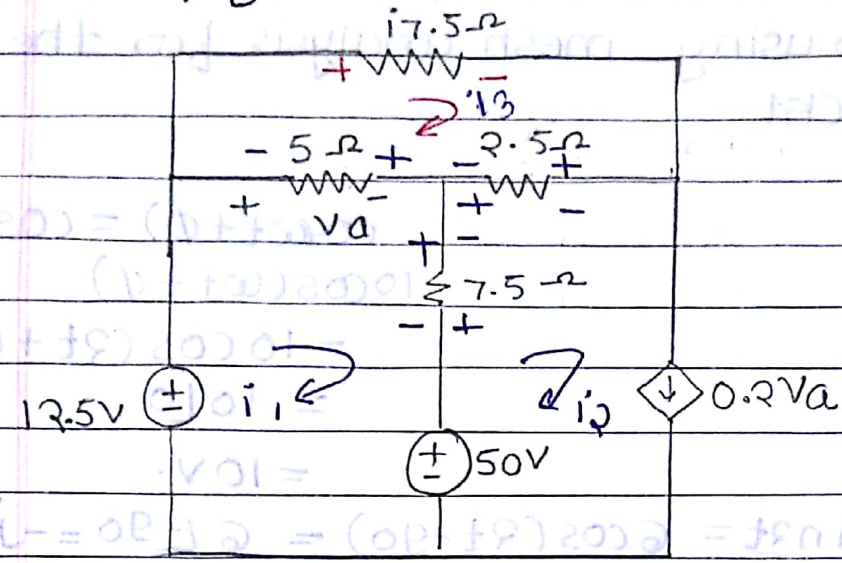 i7.5Ω
+ −
i3
− 5Ω + − 2.5Ω +
+ − + −
va
+ −
7.5Ω
− +
12.5V ± i1 i2 0.2Va
± 50V